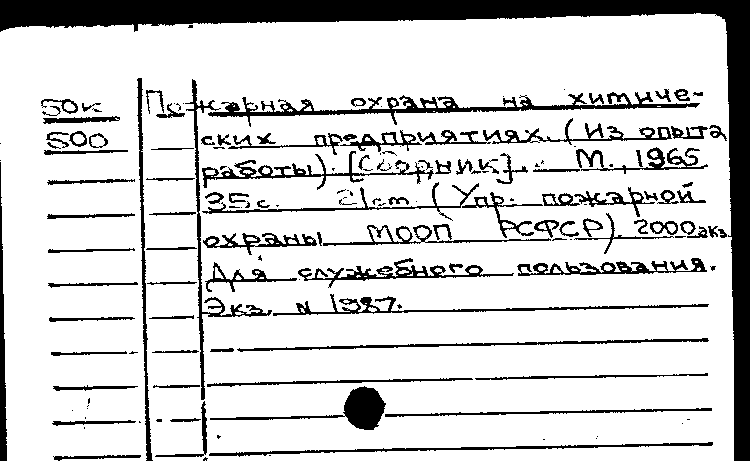 50к Пожарная охрана на химиче-
500 ских предприятиях. (Из опыта
работы). [Сборник]. М., 1965
35с. 21см (Упр. пожарной
охраны МООП РСФСР). 2000экз.
Для служебного пользования.
Экз. N 1987.